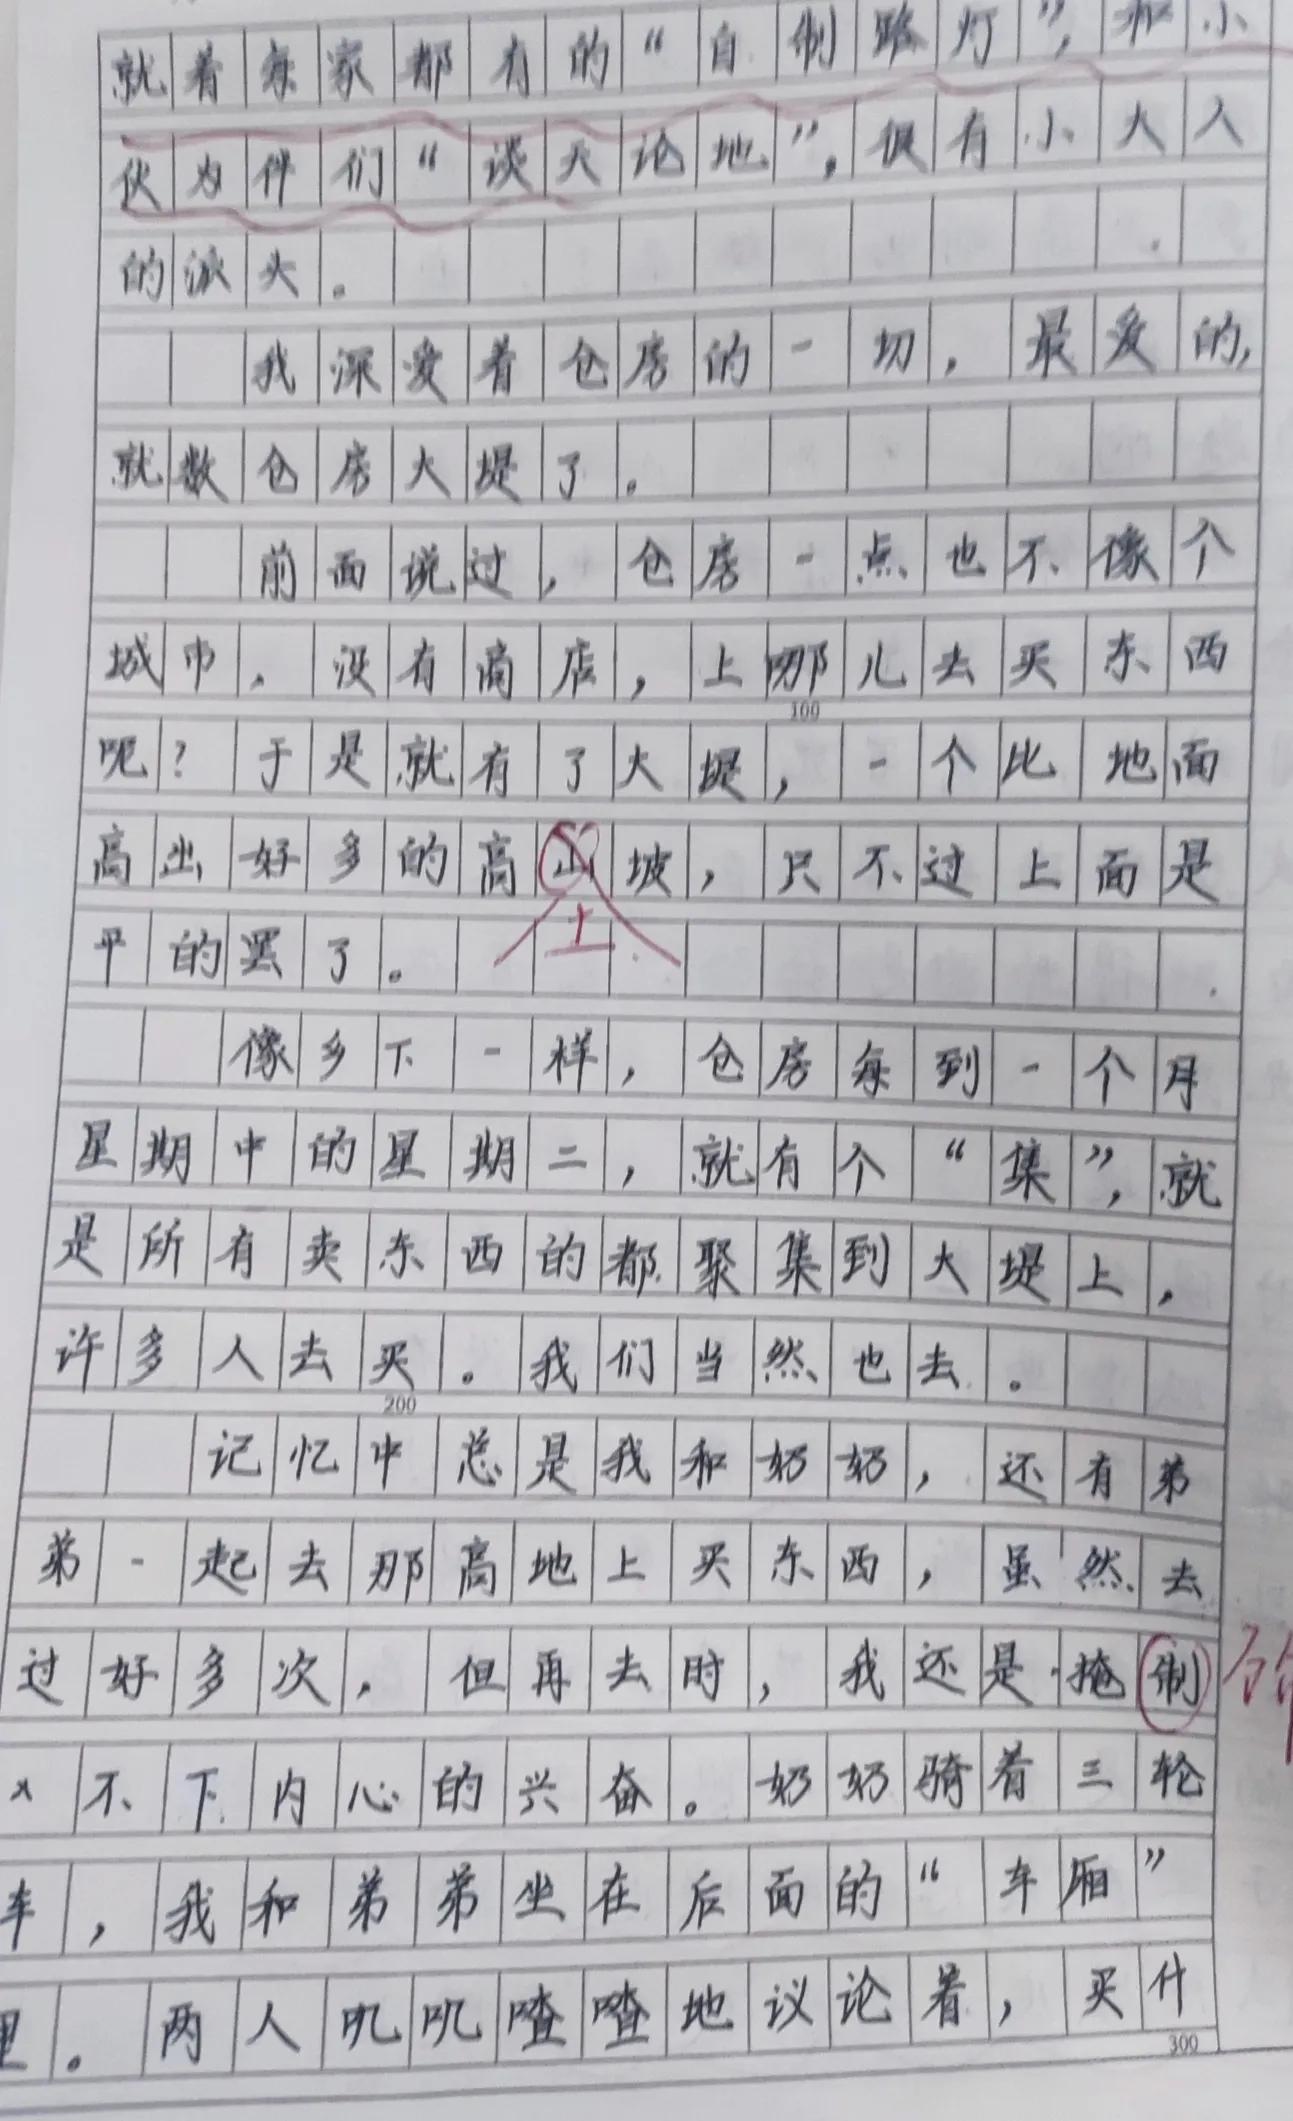 就着每家都有的“自制路灯”，和小
伙为伴们“谈天论地”，很有小大人
的派头。
我深爱着仓房的一切，最爱的，
就数仓房大堤了。
前面说过，仓房一点也不像个
城市，没有商店，上哪儿去买东西
100
呢？于是就有了大堤，一个比地面
高出好多的高山坡，只不过上面是
土
平的罢了。
像乡下一样，仓房每到一个月
星期中的星期二，就有个“集”，就
是所有卖东西的都聚集到大堤上，
许多人去买。我们当然也去。
200
记忆中总是我和奶奶，还有弟
弟一起去那高地上买东西，虽然去
过好多次，但再去时，我还是掩制
不下内心的兴奋。奶奶骑着三轮
车，我和弟弟坐在后面的“车厢”
里。两人叽叽喳喳地议论着，买什
300